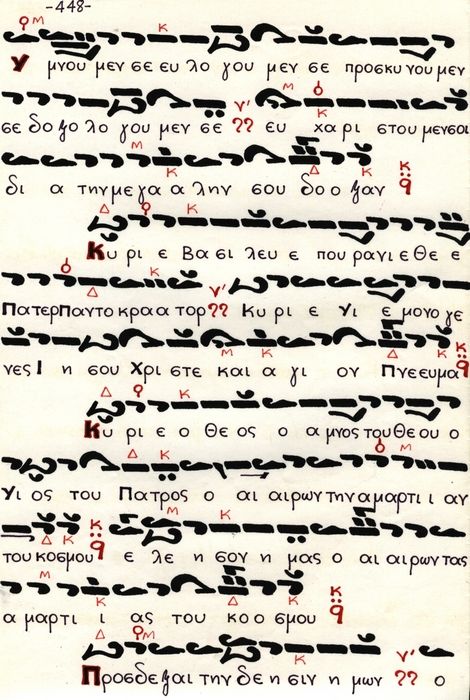 -448-
Υ μνου μεν σε ευ λο γου μεν σε προσκυ νου μεν
σε δο ξο λο γου μεν σε ευ χα ρι στου μεν σοι
δι α την με γα α λην σου δο ο ξαν
Κυ ρι ε Βα σι λευ ε που ρα νι ε Θε ε
Πα τερ Παν το κρα α τορ Κυ ρι ε Υι ε μο νο γε
νες Ι η σου Χρι στε και α γι ον Πνε ευ μα
Κυ ρι ε ο Θε ος ο α μνος του Θε ου ο
Υι ος του Πα τρος ο αι αι ρων την α μαρ τι αν
του κο σμου ε λε η σον η μας ο αι αι ρων τας
α μαρ τι ι ας του κο ο σμου
Προσ δε ξαι την δε η σιν η μων ο